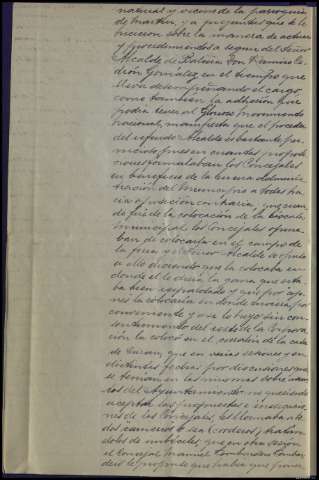 natural y vecino de la parroquia
de Martin, y a preguntas que se le
hicieron sobre la manera de actuar
y procedimientos a seguir del Señor
Alcalde de Baleira Don
González, en el tiempo que
lleva desempeñando el cargo,
como tambien la adhesión que
podia tener al Glorioso movimiento
nacional, manifiesta que el proceder
del referido Alcalde es bastante
pues en cuantas
ciones formulaban los Concejales
en beneficio de la buena adminis-
tración del Municipio a todas ha-
cia oposición contraria, que cuan-
do fue de la colocación de la bascula
municipal, los Concejales opina-
ban de colocarla en el campo de
la feria y el Señor Alcalde se
a ello diciendo que la colocaba en
donde el le diera la gana que esta-
ba bien respaldado y que por
la colocaria en donde tuviera por
conveniente y así lo hizo sin con-
sentimiento del resto de la Corpora-
ción la colocó en el de la casa
de que en varias sesiones y en
distintas fechas por discusiones que
se tenian en las mismas sobre asun-
tos del Ayuntamiento no queriendo
aceptar las propuestas
nes de los Concejales, les llamaba a to-
dos carneros o sea (cordeos) tratan-
doles de imbeciles, que en otra sesión
el Concejal Manuel
dess le propuso que habia que poner